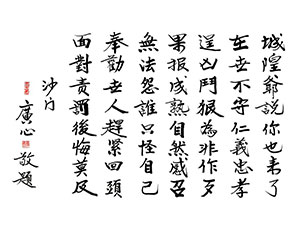 城隍爺說你也來了
在世不守仁義忠孝
逞凶鬥狠為非作歹
果报成熟自然感召
無法怨誰只怪自己
奉勸世人趕緊回頭
面對責罰後悔莫及
沙门
廣心 敬題